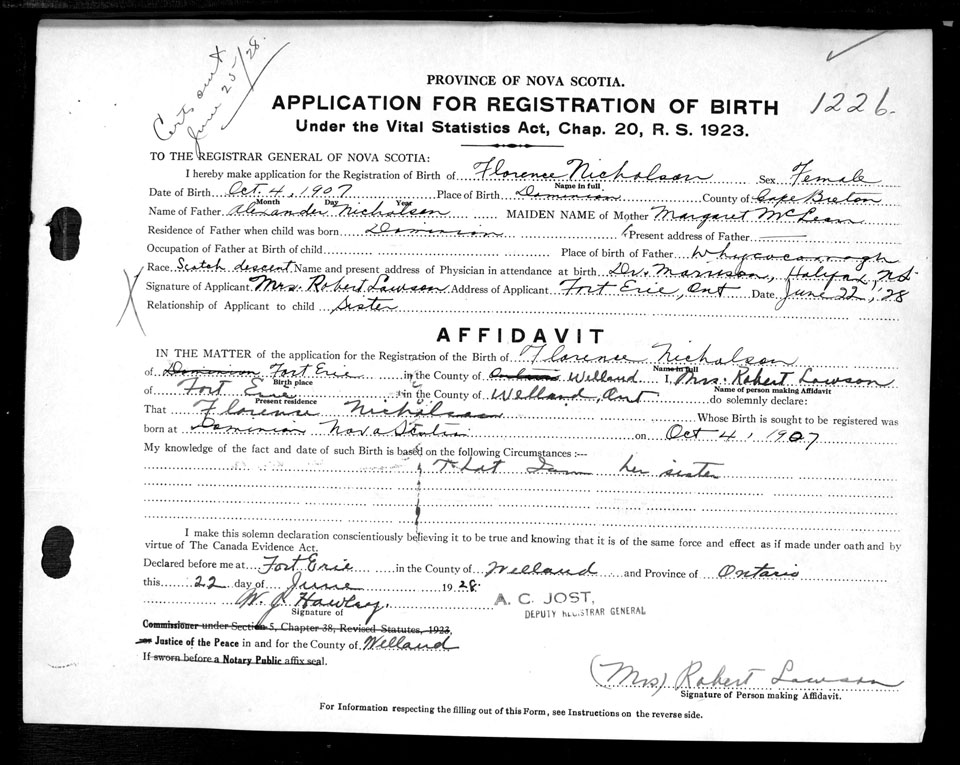 Certs out
June 25/28.
PROVINCE OF NOVA SCOTIA.
APPLICATION FOR REGISTRATION OF BIRTH
1226.
Under the Vital Statistics Act, Chap. 20, R. S. 1923.
TO THE REGISTRAR GENERAL OF NOVA SCOTIA:
I hereby make application for the Registration of Birth of Florence Nicholson Sex Female
Name in full.
Date of Birth Oct. 4, 1907 Place of Birth Dominion County of Cape Breton
Month Day Year
Name of Father Alexander Nicholson MAIDEN NAME of Mother Margaret McLean
Residence of Father when child was born Dominion Present address of Father —
Occupation of Father at Birth of child Place of birth of Father Whycocomagh
Race Scotch descent Name and present address of Physician in attendance at birth Dr. Morrison, Halifax, N.S.
Signature of Applicant Mrs. Robert Lawson Address of Applicant Fort Erie, Ont Date June 22, '28
Relationship of Applicant to child Sister
AFFIDAVIT
IN THE MATTER of the application for the Registration of the Birth of Florence Nicholson
Name in full
of Dominion Fort Erie in the County of Ontario Welland I, Mrs. Robert Lawson
Birth place Name of person making Affidavit
of Fort Erie in the County of Welland, Ont do solemnly declare:
Present residence
That Florence Nicholson Whose Birth is sought to be registered was
born at Dominion Nova Scotia on Oct 4, 1907
My knowledge of the fact and date of such Birth is based on the following Circumstances :—
That I am her sister
I make this solemn declaration conscientiously believing it to be true and knowing that it is of the same force and effect as if made under oath and by
virtue of The Canada Evidence Act.
Declared before me at Fort Erie in the County of Welland and Province of Ontario
this 22 day of June 1928.
W. J. Hawley.
Signature of
A. C. JOST,
DEPUTY REGISTRAR GENERAL
Commissioner under Section 5, Chapter 38, Revised Statutes, 1923,
or Justice of the Peace in and for the County of Welland
If sworn before a Notary Public affix seal.
(Mrs) Robert Lawson
Signature of Person making Affidavit.
For Information respecting the filling out of this Form, see Instructions on the reverse side.